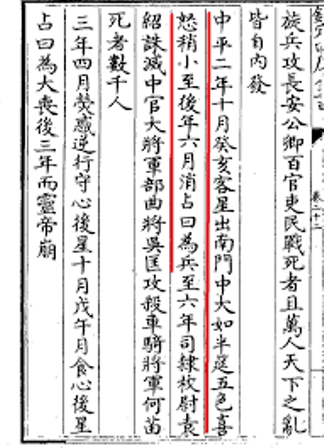 族兵攻長安公卿百官吏民戰死者且萬人天下之亂
皆自內發
中平二年十月癸亥客星出南門中大如半筵五色喜
怒稍小至後年六月消占曰為兵至六年司隸校尉袁
紹誅滅中官大將軍部曲將吳匡攻殺車騎將軍何苗
死者數千人
三年四月熒惑逆行守心後星十月戊午月食心後星
占曰為大喪後三年而靈帝崩